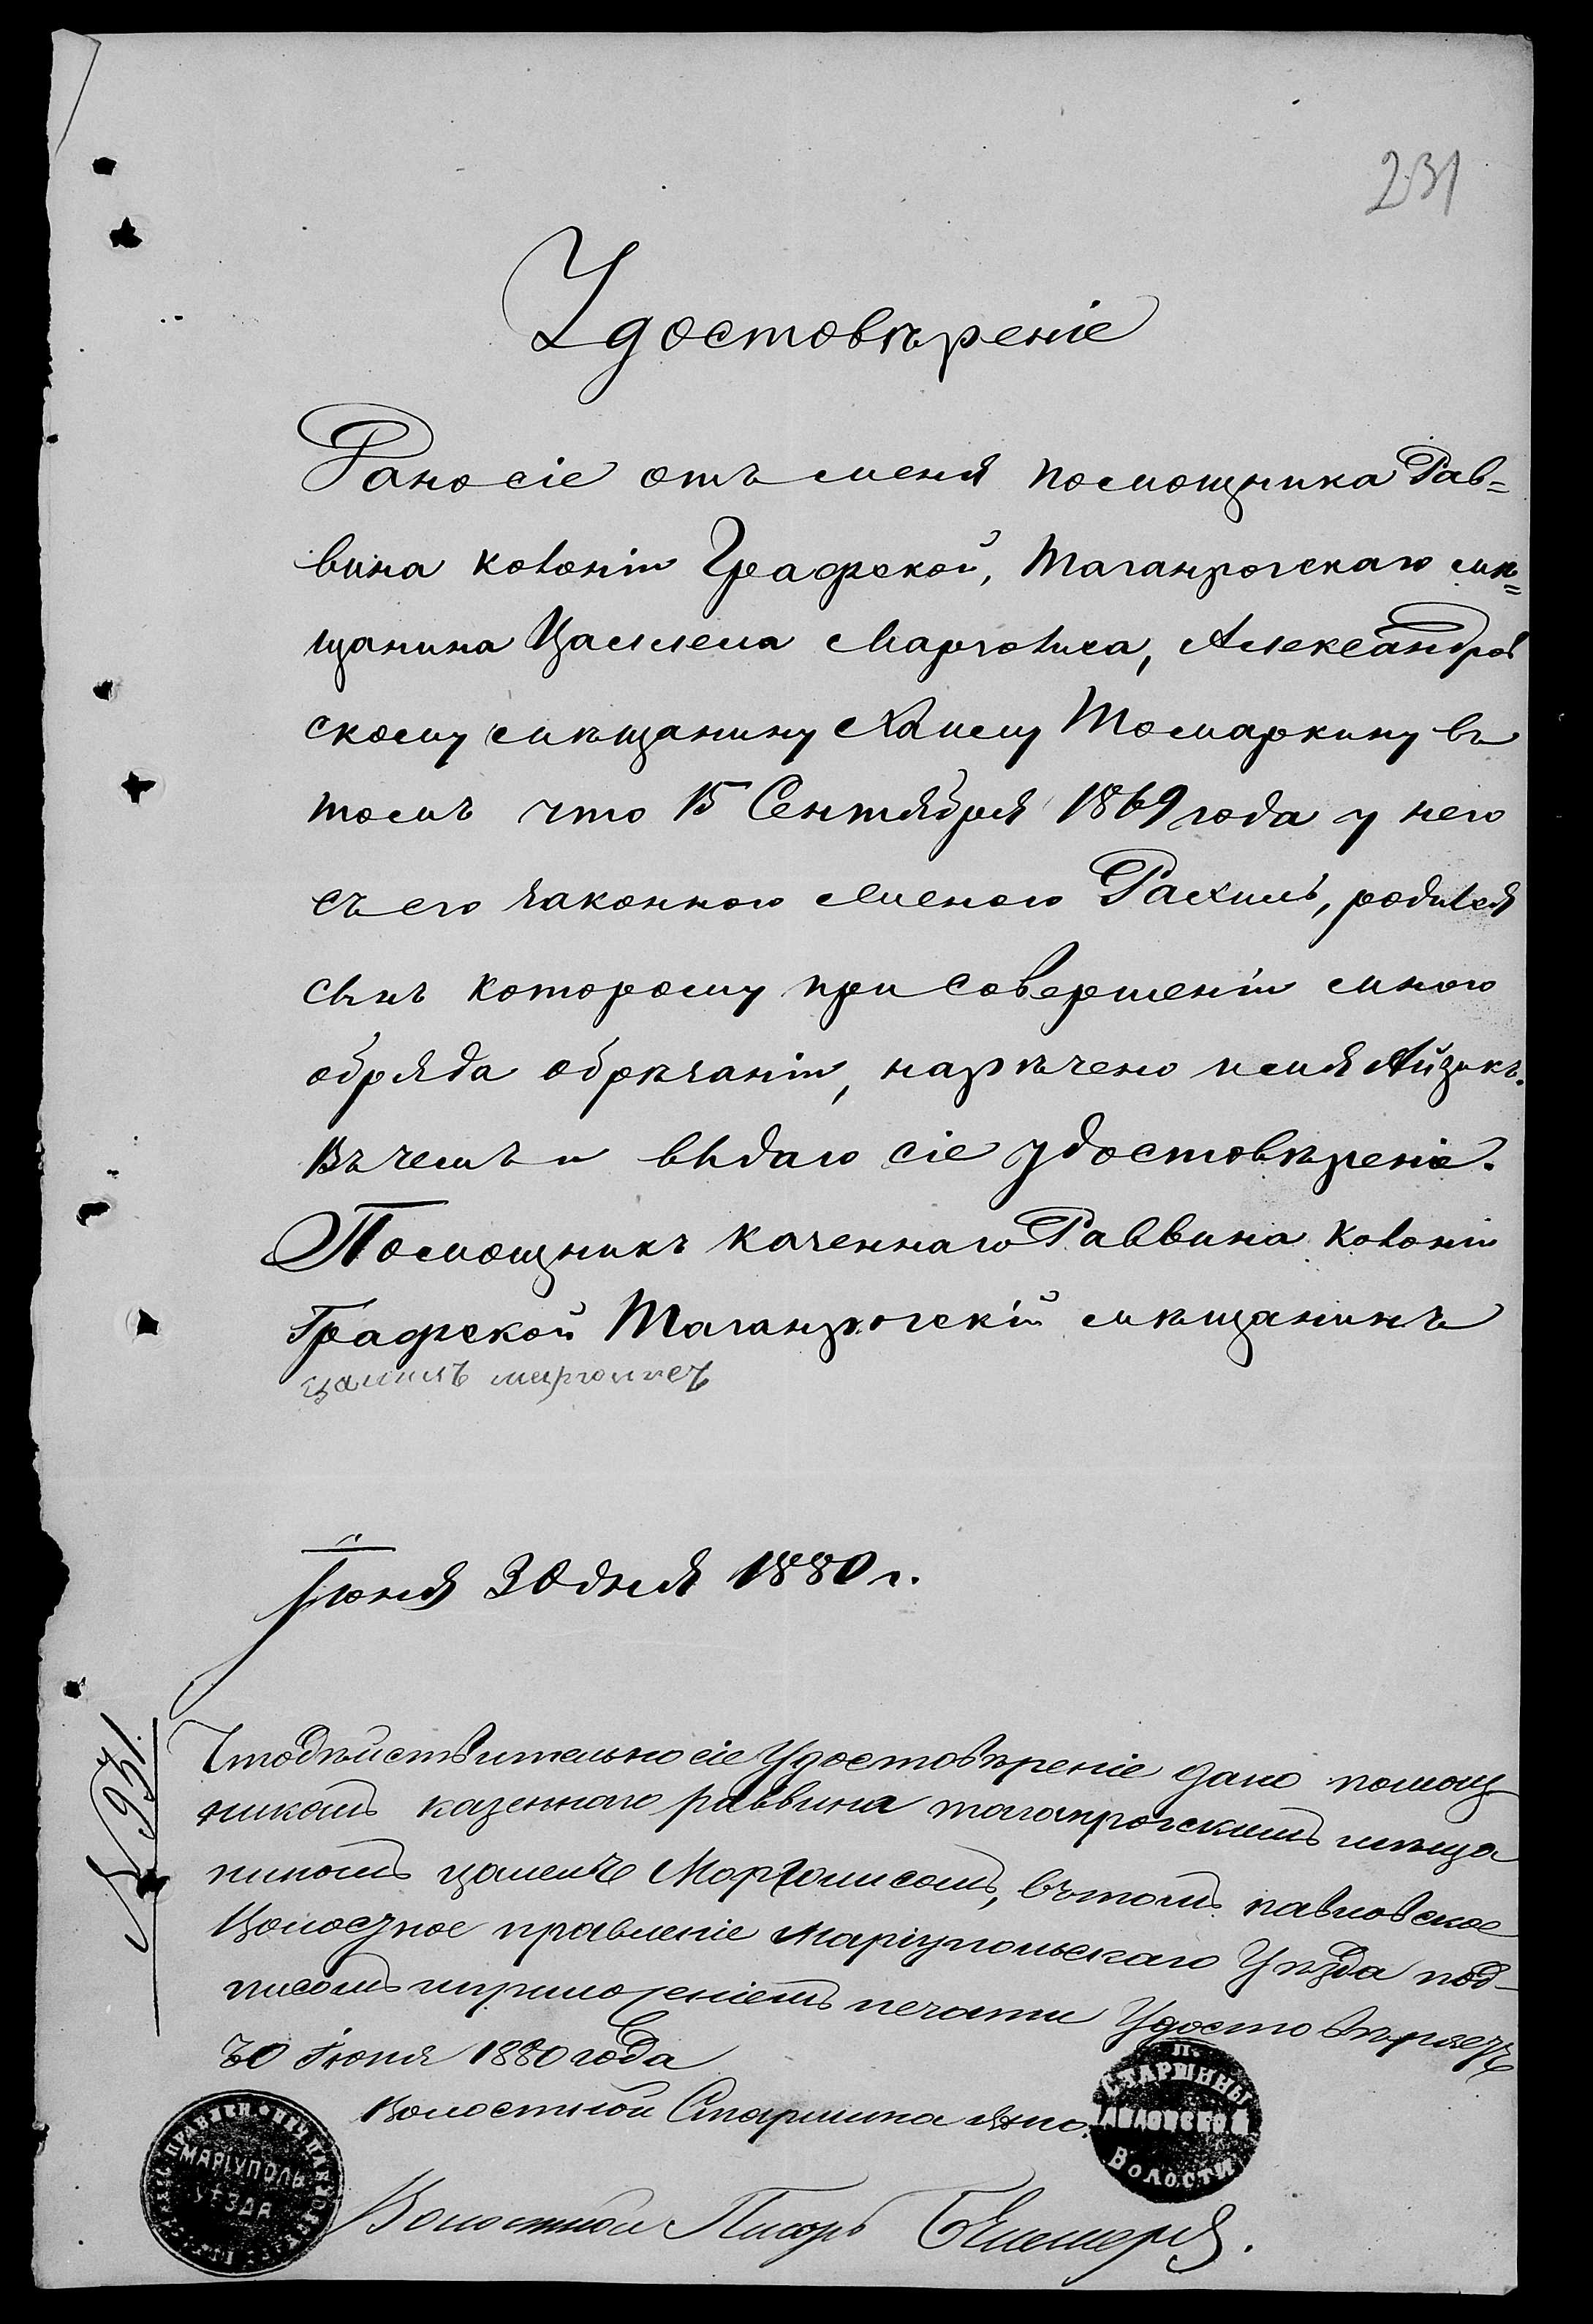 231
Удостовѣреніе
Дано сіе отъ меня помощника Рав=
вина колоніи Графской, Таганрогскаго мѣ=
щанина Цаллела Марголиса, Александров
скому мѣщанину Хаиму Томаркину въ
томъ что 15 Сентября 1869 года у него
съ его законною женою Рахиль, родился
сынъ которому при совершеніи мною
обряда обрѣзанія, нарѣчено имя Айзикъ.
Въ чемъ и выдаю сіе удостовѣреніе.
Помощникъ казеннаго Раввина колоніи
Графской Таганрогскій мѣщанинъ
марголисъ
Іюня 30 дня 1880 г.
№ 931.
Что дѣйствительно сіе Удостовѣреніе дано помощ
никомъ казеннаго раввина таганрогскимъ мѣща
ниномъ Марголисомъ, въ томъ павловское
Волостное правленіе Маріупольскаго Уѣзда под-
писомъ и приложеніемъ печати Удостовѣряетъ
30 Іюня 1880 года
Волостной Старшина
СТАРШИНЫ
ПАВЛОВСКОЙ
ВОЛОСТИ
МАРІУПОЛЬ
УѢЗДА
Волостной Писарь